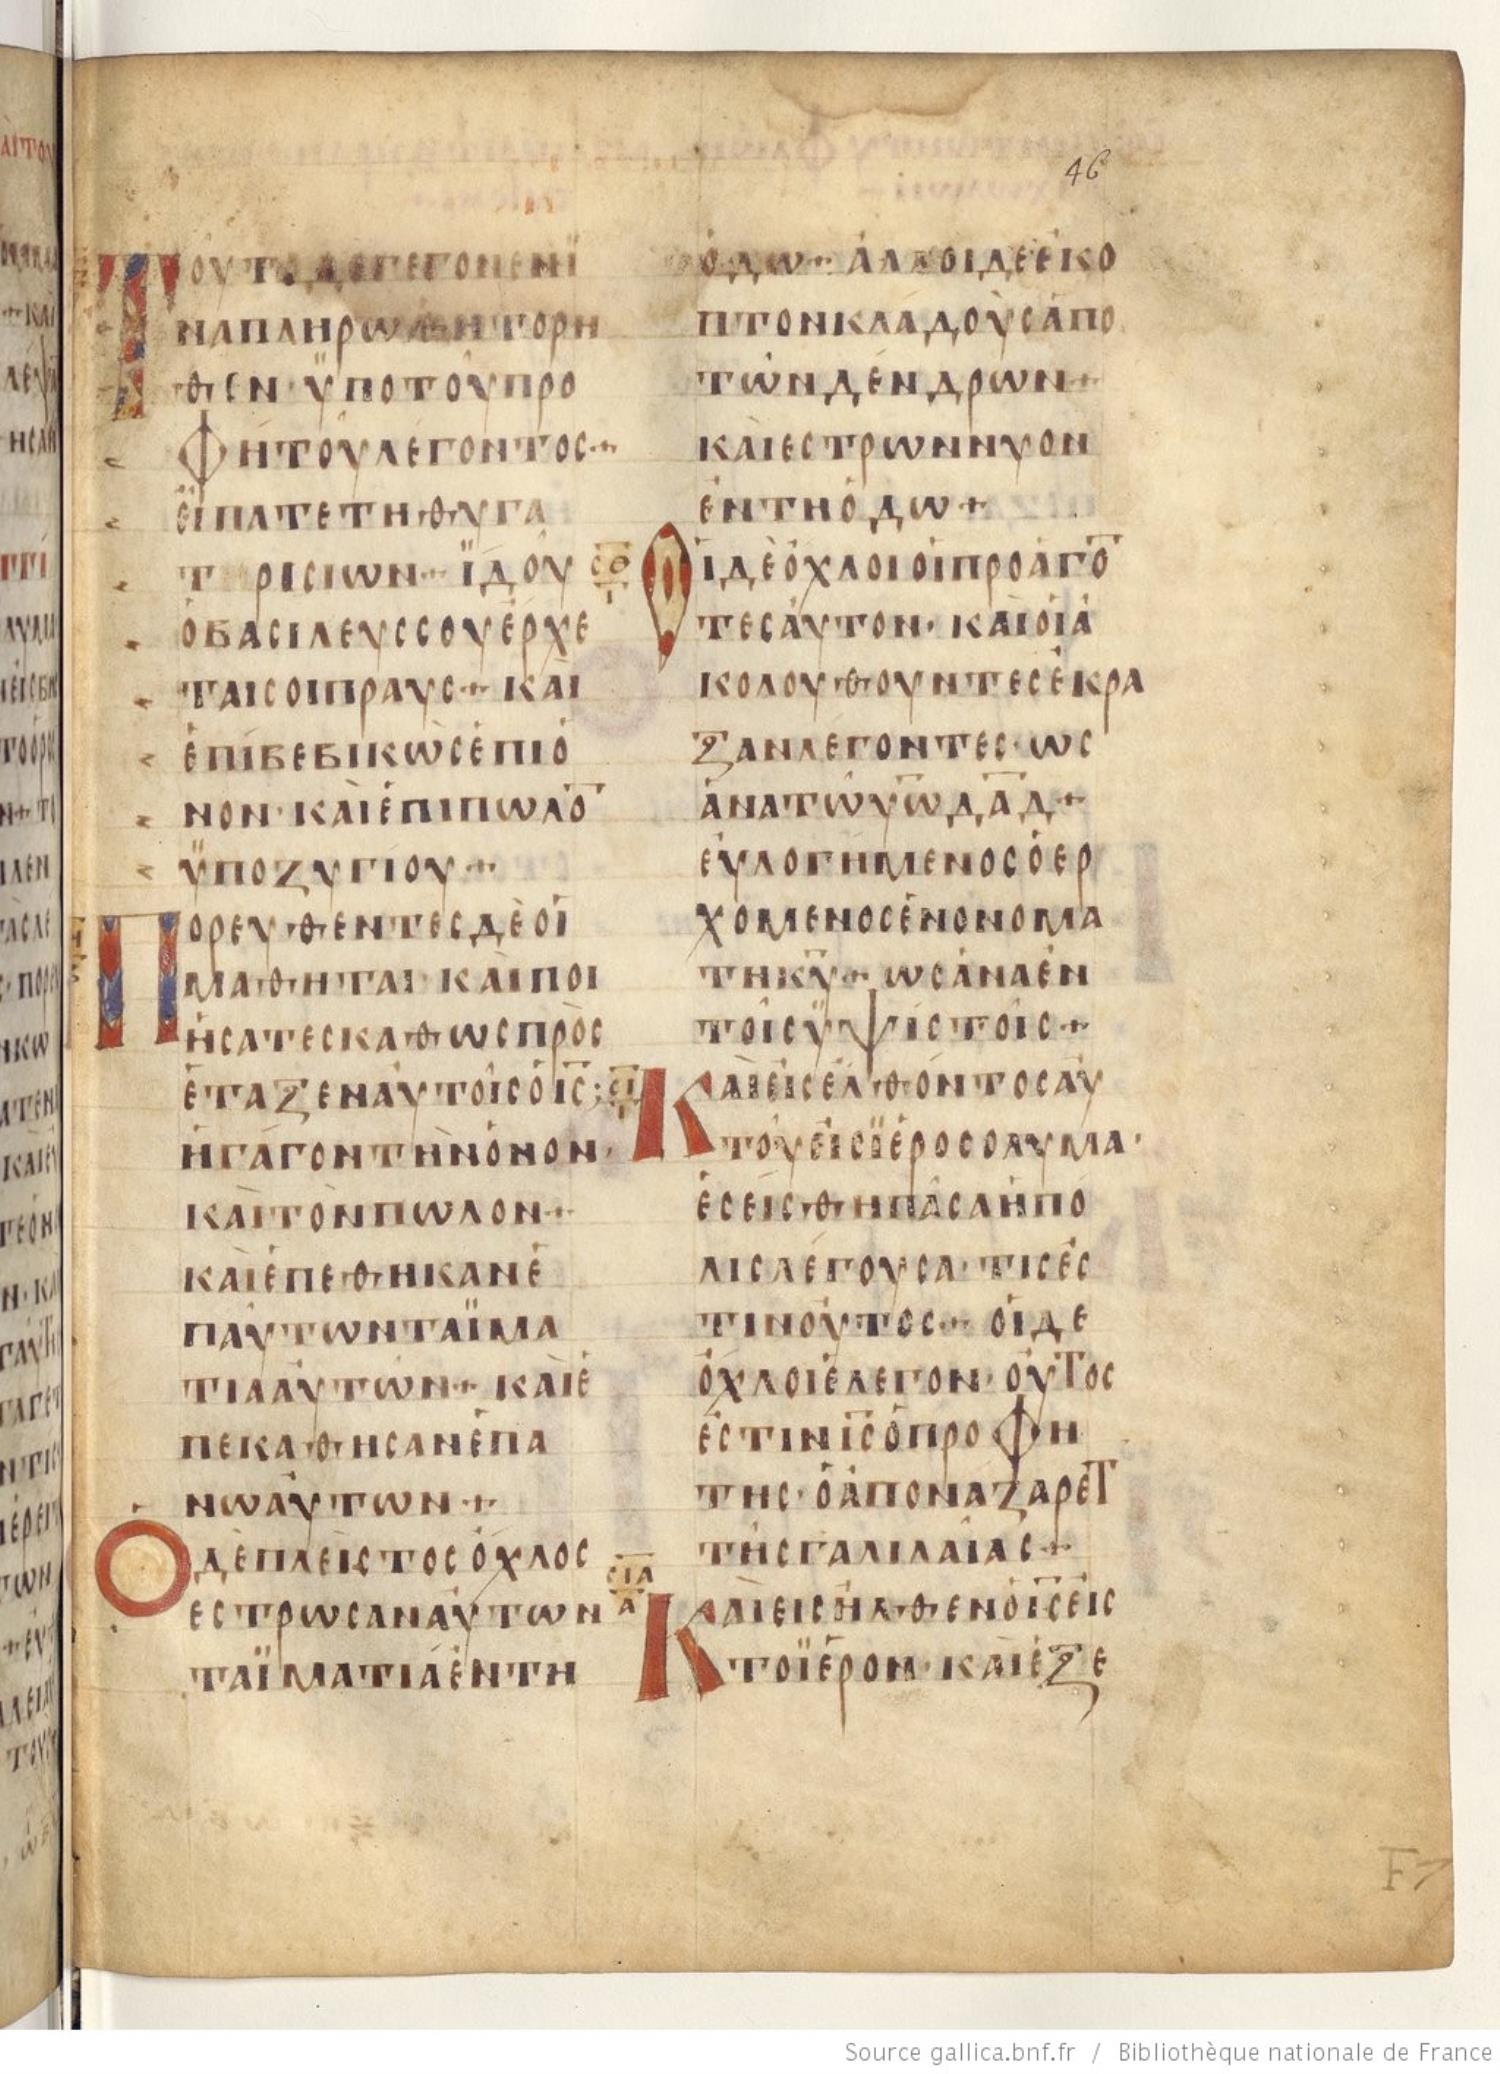 46
Τ ΟΥΤΟ ΔΕ ΓΕΓΟΝΕΝ Ϊ
ΝΑ ΠΛΗΡΩΘΗ ΤΟ ΡΗ
ΘΕΝ · ΫΠΟ ΤΟΥ ΠΡΟ
ΦΗΤΟΥ ΛΕΓΟΝΤΟΣ +
ΕΙΠΑΤΕ ΤΗ ΘΥΓΑ
ΤΡΙ ΣΙΩΝ + ΪΔΟΥ
Ο ΒΑΣΙΛΕΥΣ ΣΟΥ ΕΡΧΕ
ΤΑΙ ΣΟΙ ΠΡΑΥΣ + ΚΑΙ
ΕΠΙΒΕΒΙΚΩΣ ΕΠΙ Ο
ΝΟΝ · ΚΑΙ ΕΠΙ ΠΩΛΟ̅
ΫΠΟΖΥΓΙΟΥ +
ΠΟΡΕΥΘΕΝΤΕΣ ΔΕ ΟΙ
ΜΑΘΗΤΑΙ · ΚΑΙ ΠΟΙ
ΗΣΑΤΕΣ ΚΑΘΩΣ ΠΡΟΣ
ΕΤΑΞΕΝ ΑΥΤΟΙΣ Ο Ι̅Σ̅ ·
ΗΓΑΓΟΝ ΤΗΝ ΟΝΟΝ ·
ΚΑΙ ΤΟΝ ΠΩΛΟΝ +
ΚΑΙ ΕΠΕΘΗΚΑΝ Ε
ΠΑΥΤΩΝ ΤΑ ΪΜΑ
ΤΙΑ ΑΥΤΩΝ + ΚΑΙ Ε
ΠΕΚΑΘΗΣΑΝ ΕΠΑ
ΝΩ ΑΥΤΩΝ +
Ο ΔΕ ΠΛΕΙΣΤΟΣ ΟΧΛΟΣ
ΕΣΤΡΩΣΑΝ ΑΥΤΩΝ
ΤΑ ΪΜΑΤΙΑ ΕΝ ΤΗ
ΟΔΩ + ΑΛΛΟΙ ΔΕ ΕΚΟ
ΠΤΟΝ ΚΛΑΔΟΥΣ ΑΠΟ
ΤΩΝ ΔΕΝΔΡΩΝ +
ΚΑΙ ΕΣΤΡΩΝΝΥΟΝ
ΕΝ ΤΗ ΟΔΩ +
Σ̅Θ̅
Ι
ΟΙ ΔΕ ΟΧΛΟΙ ΟΙ ΠΡΟΑΓΟ̅
ΤΕΣ ΑΥΤΟΝ · ΚΑΙ ΟΙ Α
ΚΟΛΟΥΘΟΥΝΤΕΣ ΕΚΡΑ
ΖΑΝ ΛΕΓΟΝΤΕΣ · ΩΣ
ΑΝΑ ΤΩ Υ̅Ω̅ Δ̅Α̅Δ̅ +
ΕΥΛΟΓΗΜΕΝΟΣ Ο ΕΡ
ΧΟΜΕΝΟΣ ΕΝ ΟΝΟΜΑ
ΤΗ Κ̅Υ̅ + ΩΣΑΝΑ ΕΝ
ΤΟΙΣ ΥΨΙΣΤΟΙΣ +
Σ̅Ι̅
ΚΑΙ ΕΙΣΕΛΘΟΝΤΟΣ ΑΥ
ΤΟΥ ΕΙΣ ΪΕΡΟΣΟΛΥΜΑ ·
ΕΣΕΙΣΘΗ ΠΑΣΑ Η ΠΟ
ΛΙΣ ΛΕΓΟΥΣΑ · ΤΙΣ ΕΣ
ΤΙΝ ΟΥΤΟΣ + ΟΙ ΔΕ
ΟΧΛΟΙ ΕΛΕΓΟΝ · ΟΥΤΟΣ
ΕΣΤΙΝ Ι̅Σ̅ Ο ΠΡΟΦΗ
ΤΗΣ · Ο ΑΠΟ ΝΑΖΑΡΕΤ
ΤΗΣ ΓΑΛΙΛΑΙΑΣ +
Σ̅Ι̅Α̅
Α
ΚΑΙ ΕΙΣΗΛΘΕΝ Ο Ι̅Σ̅ ΕΙΣ
ΤΟ ΪΕΡΟΝ · ΚΑΙ ΕΞΕ
Source gallica.bnf.fr / Bibliothèque nationale de France